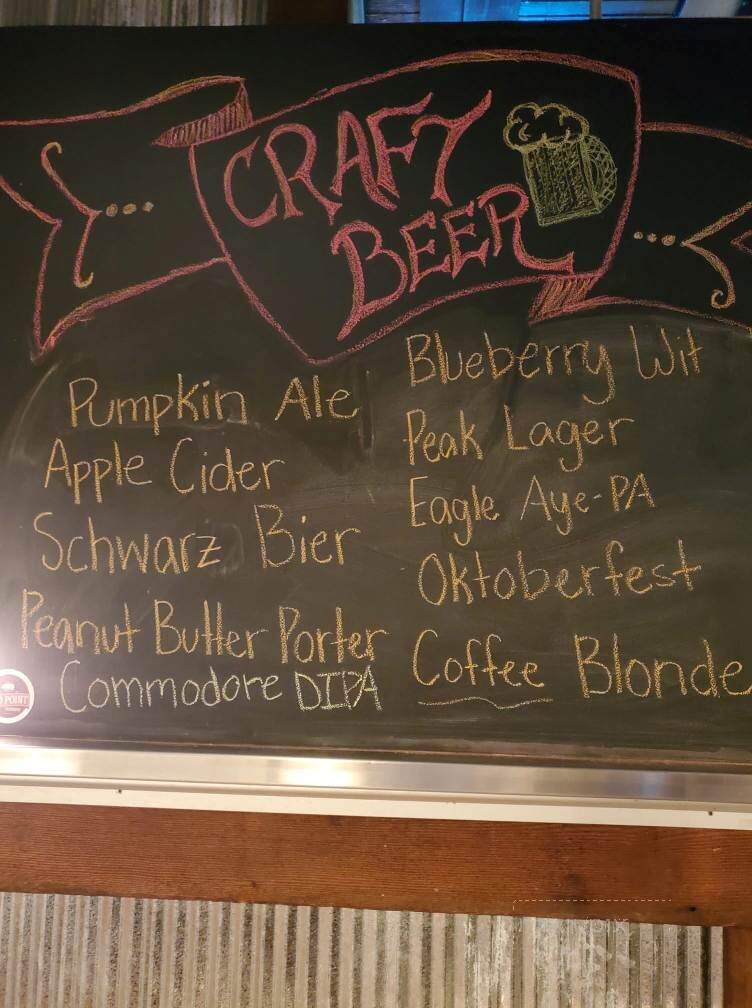 CRAFT
BEER
Pumpkin Ale
Apple Cider
Schwarz Bier
Peanut Butter Porter
Commodore DIPA
Blueberry Wit
Peak Lager
Eagle Aye-PA
Oktoberfest
Coffee Blonde
POINT